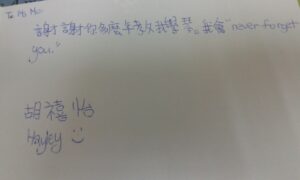 To Ms Mo
謝謝你多麼年教我學琴。我會"never forget
you."
胡禧怡
Hayley :)